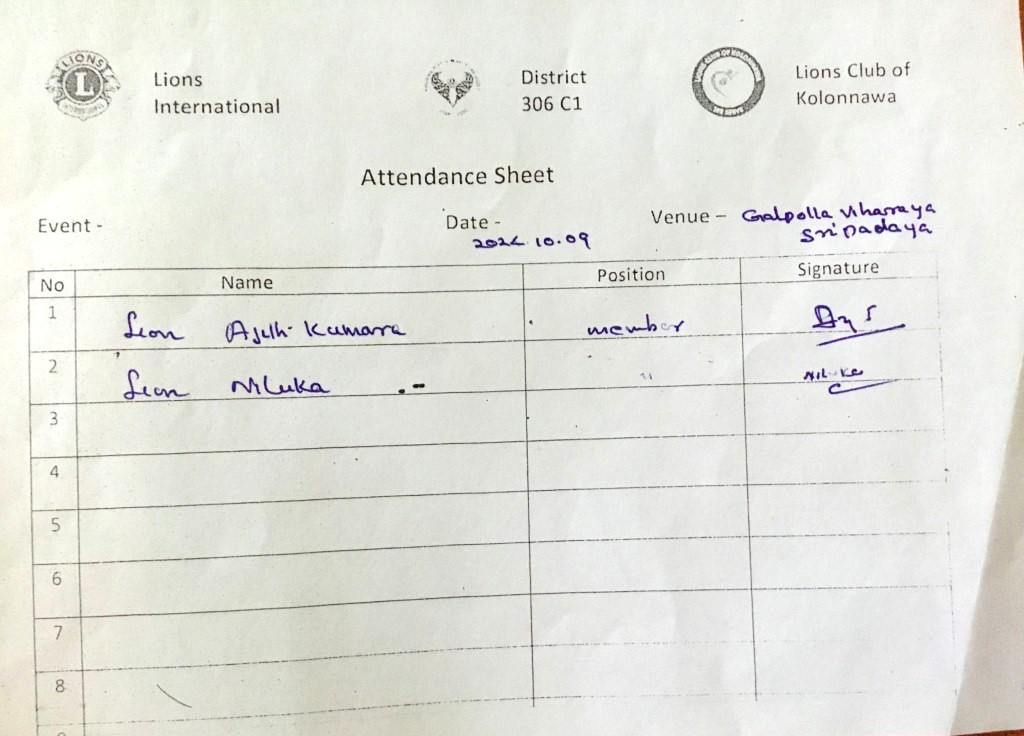 LIONS
L
INTERNATIONAL
Lions
International
District
306 C1
Lions Club of
Kolonnawa
Attendance Sheet
Event -
Date -
2024.10.09
Venue – Galpolla Viharaya
Sri Padaya
No Name Position Signature
1 Lion Ajith Kumara member
2 Lion Niluka " Niluka
3
4
5
6
7
8